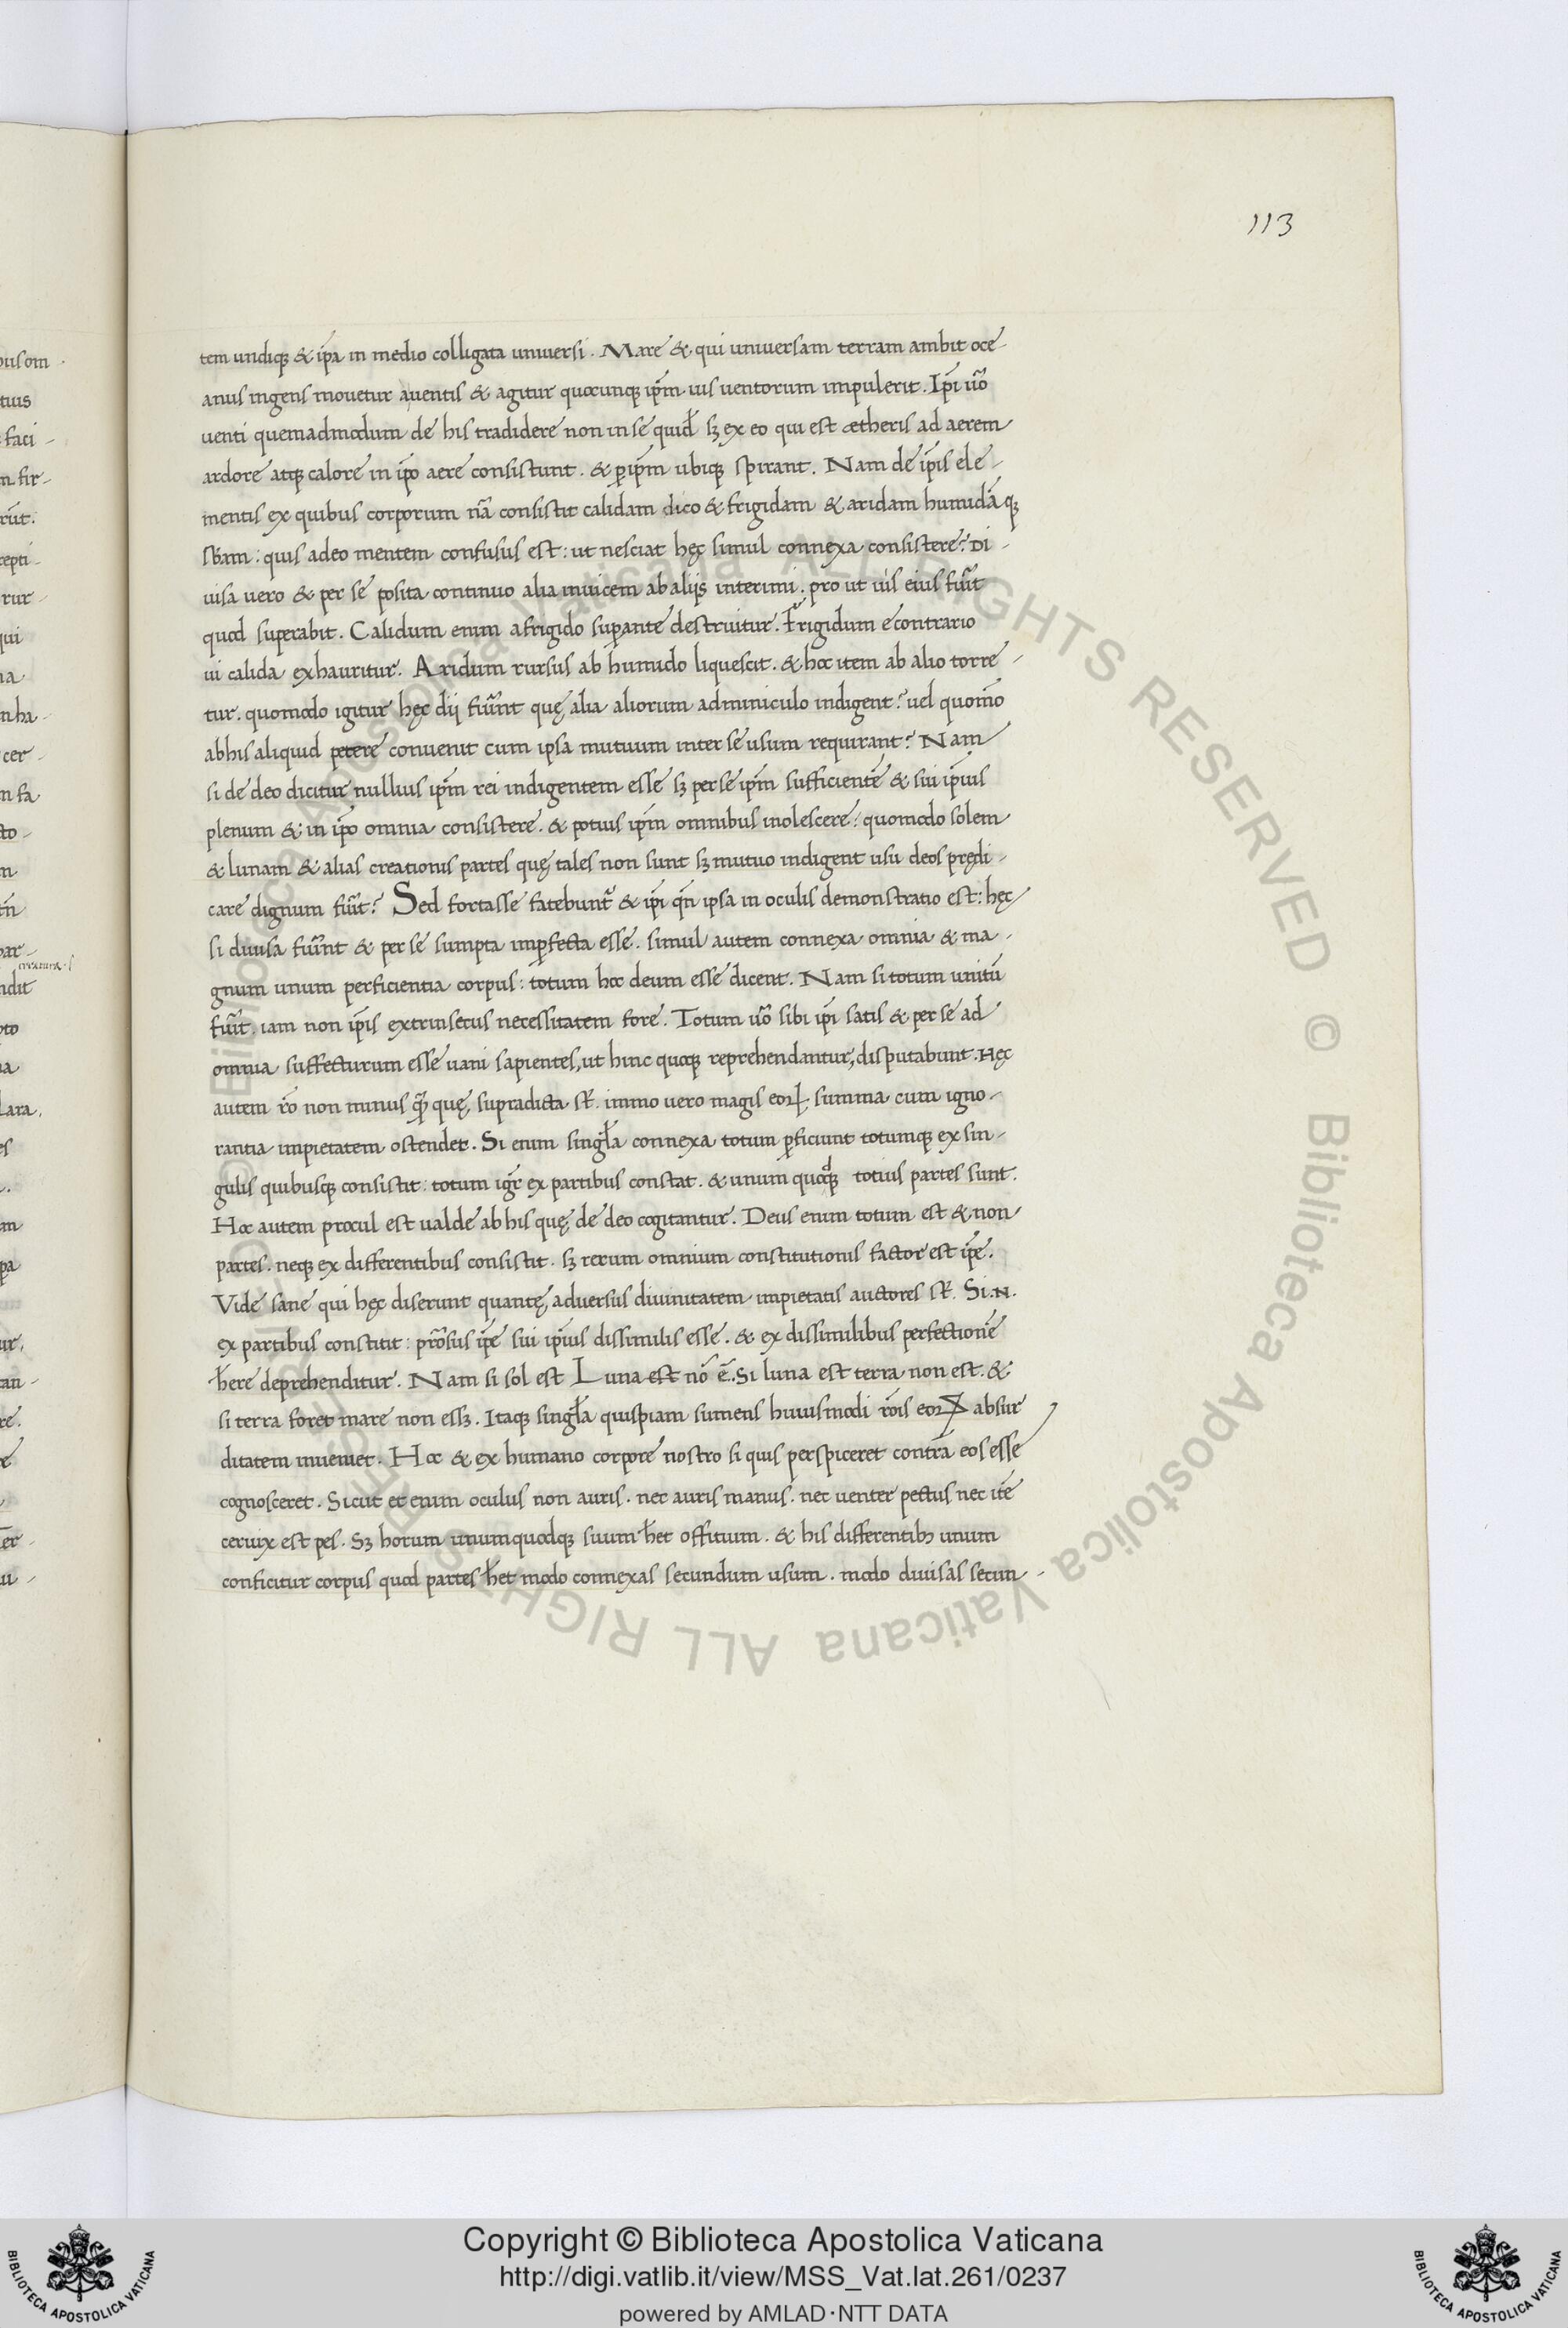 113
tem undiq; & ip̃a in medio colligata universi. Mare & qui universam terram ambit oce-
anus ingens movetur aventis & agitur quocunq; ip̃m vis ventorum impulerit. Ip̃i ṽo
venti quemadmodum de his tradidere non in se quid̃ sꝫ ex eo qui est ætheris ad aerem
ardore atq; calore in ip̃o aere consistunt. & ꝑ ip̃m ubiq; spirant. Nam de ip̃is ele-
mentis ex quibus corporum nã consistit calidam dico & frigidam & aridam humidã q;
sb̃am: quis adeo mentem confusus est: ut nesciat hęc simul connexa consistere? Di-
visa vero & per se posita continuo alia invicem ab aliis interimi. pro ut vis eius fuĩt
quod superabit. Calidum enim a frigido suꝑante destruitur. Frigidum e contrario
vi calida exhauritur. Aridum rursus ab humido liquescit. & hoc item ab alio torre-
tur. quomodo igitur hęc dij fuĩnt quę alia aliorum adminiculo indigent? vel quom̃o
ab his aliquid petere convenit cum ipsa mutuum inter se usum requirant? Nam
si de deo dicitur nullius ip̃m rei indigentem esse sꝫ per se ip̃m sufficientẽ & sui ip̃ius
plenum & in ip̃o omnia consistere. & potius ip̃m omnibus inolescere: quomodo solem
& lunam & alias creationis partes quę tales non sunt sꝫ mutuo indigent usu deos prędi-
care dignum fuĩt? Sed fortasse fatebunt̃ & ip̃i qñ ipsa in oculis demonstratio est: hęc
si divisa fuĩnt & per se sumpta imꝑfecta esse. simul autem connexa omnia & ma-
gnum unum perficientia corpus: totum hoc deum esse dicent. Nam si totum unitũ
fuĩt. iam non ip̃is extrinsecus necessitatem fore. Totum ṽo sibi ip̃i satis & per se ad
omnia suffecturum esse vani sapientes, ut hinc quoq; reprehendantur, disputabunt. Hęc
autem rõ non minus q̃ꝫ quę supradicta st̃. immo vero magis eoꝝ summa cum igno-
rantia impietatem ostendet. Si enim singl̃a connexa totum ꝑficiunt totumq; ex sin-
gulis quibusq; consistit: totum igr̃ ex partibus constat. & unum quodq; totius partes sunt.
Hoc autem procul est valde ab his quę de deo cogitantur. Deus enim totum est & non
partes. neq; ex differentibus consistit. sꝫ rerum omnium constitutionis factor est ip̃e.
Vide sane qui hęc diserunt quantę adversus divinitatem impietatis auctores st̃. Si .N.
ex partibus constitit: prõsus ip̃e sui ip̃ius dissimilis esse. & ex dissimilibus perfectionẽ
h̃ere deprehenditur. Nam si sol est Luna est nõ ẽ. Si luna est terra non est. &
si terra foret mare non essꝫ. Itaq; singl̃a quispiam sumens huiusmodi rõis eoꝝ absur
ditatem inveniet. Hoc & ex humano corpore nostro si quis perspiceret contrã eos esse
cognosceret. Sicut et enim oculus non auris. nec auris manus. nec venter pectus nec itẽ
cervix est pes. Sꝫ horum unumquodq; suum h̃et offitium. & his differentibꝫ unum
conficitur corpus quod partes h̃et modo connexas secundum usum. modo divisas secun-
Copyright © Biblioteca Apostolica Vaticana
http://digi.vatlib.it/view/MSS_Vat.lat.261/0237
powered by AMLAD·NTT DATA